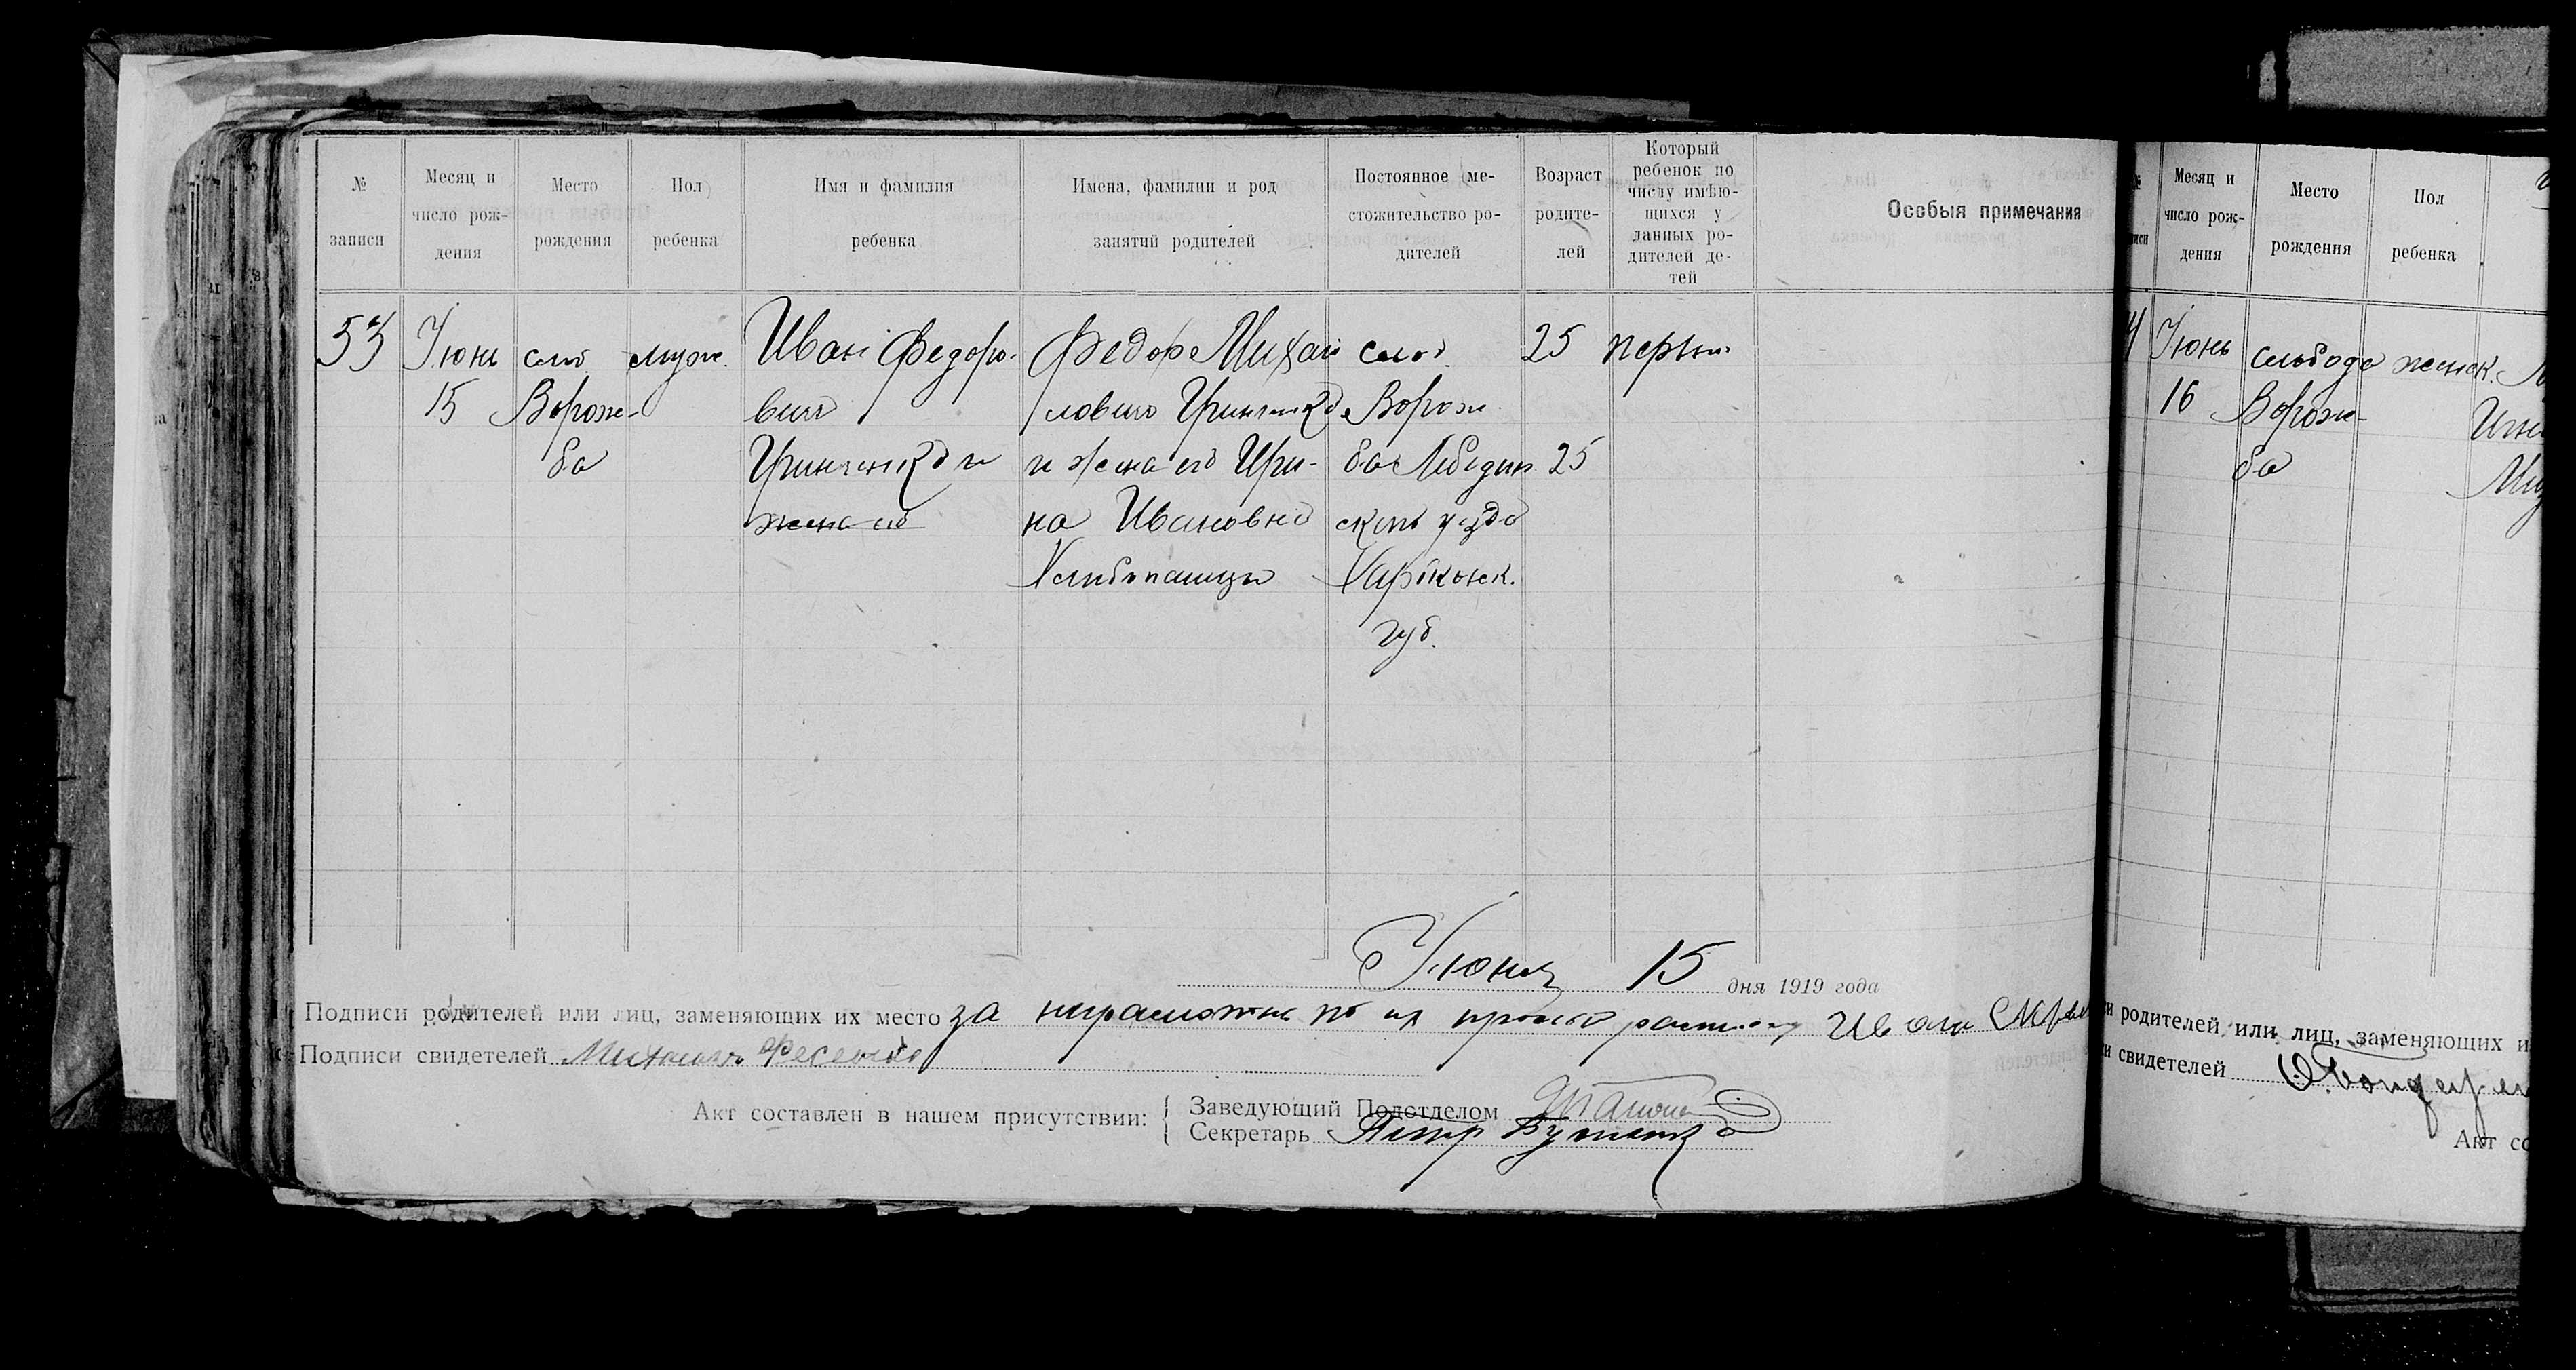 № записи
Месяц и число рождения
Место рождения
Пол ребенка
Имя и фамилия ребенка
Имена, фамилии и род занятий родителей
Постоянное местожительство родителей
Возраст родителей
Который ребенок по числу имѣющихся у данных родителей детей
Особыя примечания
53
Июнь
15
слоб.
Ворож-
ба
муж.
Иван Федоро-
вич
Гринченко и
жена его
Федор Михай
лович Гринченко
и жена его Ири-
на Ивановна
Хлебопашцы
слоб.
Ворож
ба Лебедин
скаго уезда
Харьковск.
губ.
25
25
первый
Июня 15 дня 1919 года
Подписи родителей или лиц, заменяющих их место за неграмотных по их просьбе Иван
Подписи свидетелей Михаил Фесенко
Акт составлен в нашем присутствии:
Заведующий Подотделом
Секретарь Петр Бутенко
Месяц и число рождения
Место рождения
Пол ребенка
Июнь
16
слобода
Ворож-
ба
женск.
и родителей, или лиц, заменяющих и
и свидетелей
Акт со